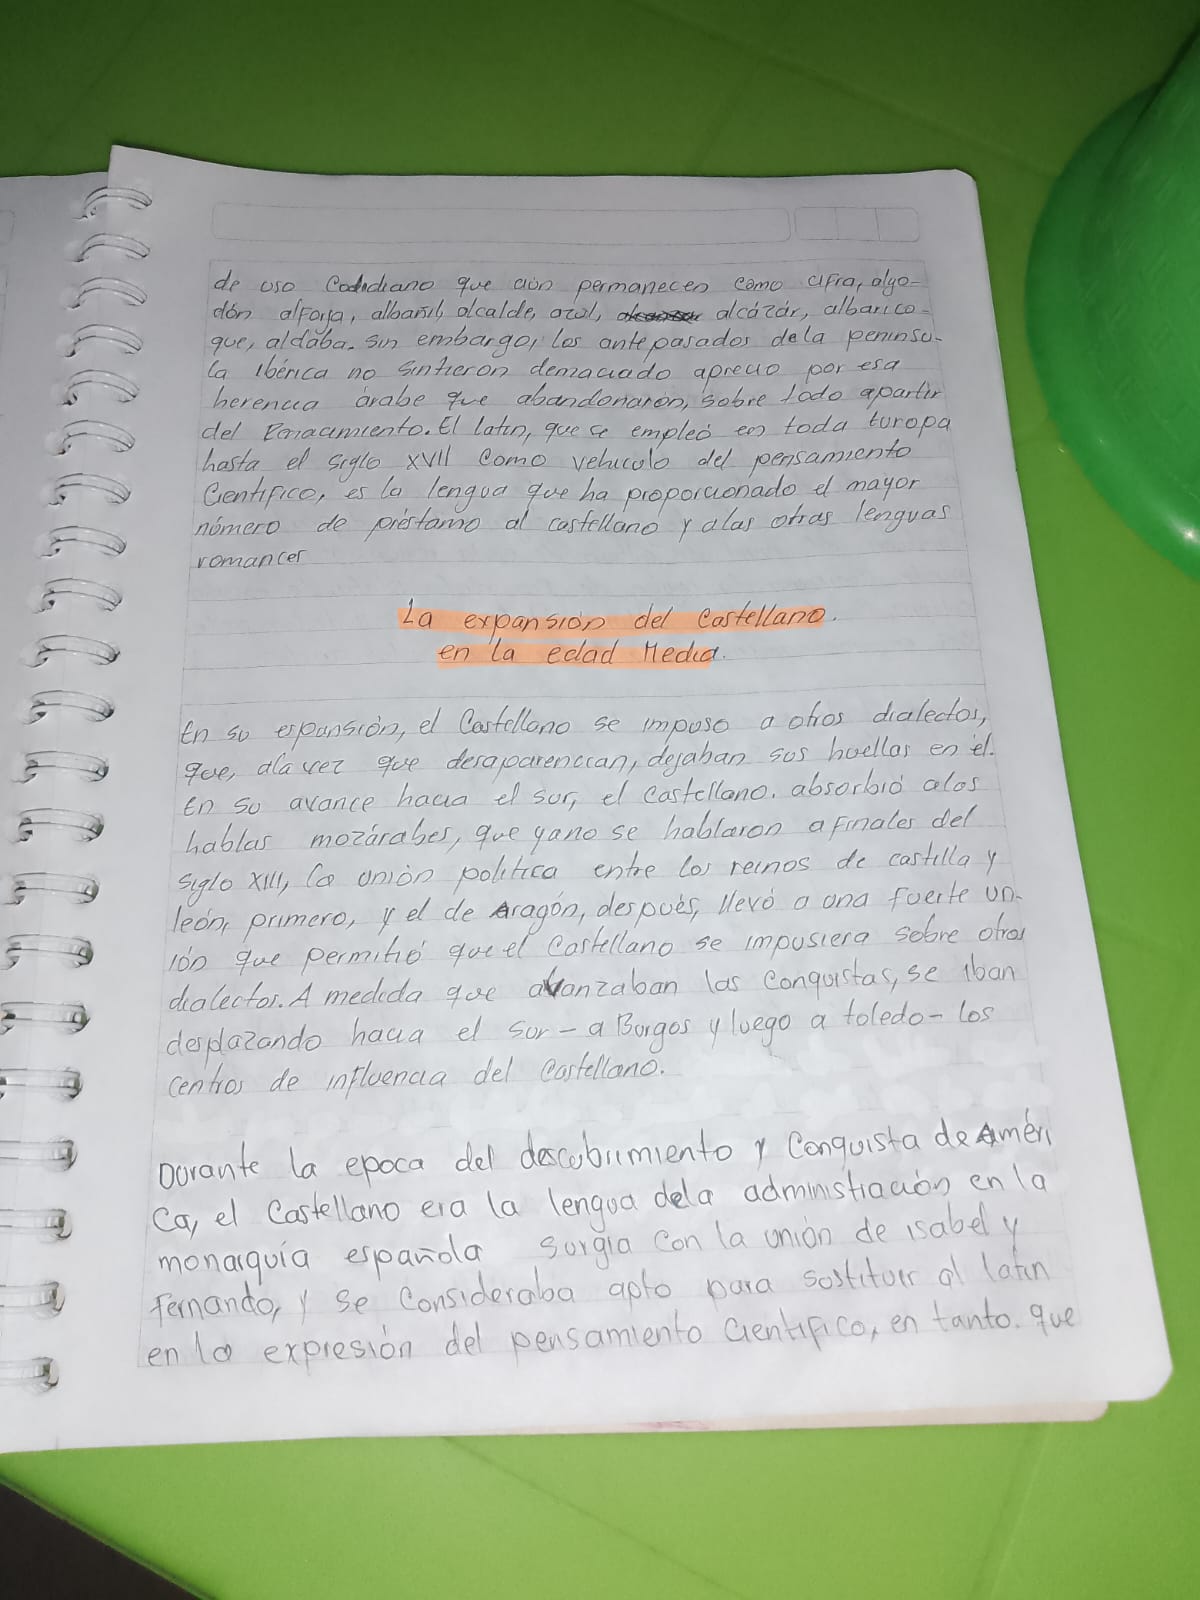 de uso Cotidiano que aún permanecen como cifra, algo-
dón alforja, albañil, alcalde, azul, alcázár, albarico-
que, aldaba. sin embargo, los antepasados dela peninsu-
la ibérica no sintieron demaciado aprecio por esa
herencia árabe que abandonarón, sobre todo apartir
del Renacimiento. El latin, que se empleó en toda Europa
hasta el siglo XVII como vehiculo del pensamiento
Cientifico, es la lengua que ha proporcionado el mayor
número de préstamo al castellano y alas otras lenguas
romances
La expansión del Castellano.
en la edad Media.
En su espansión, el Castellano se impuso a otros dialectos,
que, ala vez que desaparencian, dejaban sus huellas en él.
En su avance hacia el sur, el castellano. absorbió alos
hablas mozárabes, que yano se hablaron afinales del
siglo XIII, la unión politica entre los reinos de castilla y
león, primero, y el de Aragón, después, llevó a una fuerte un-
ión que permitió que el Castellano se impusiera sobre otros
dialectos. A medida que avanzaban las conquistas, se iban
desplazando hacia el sur - a Burgos y luego a toledo - los
centros de influencia del Castellano.
Durante la epoca del descubrimiento y Conquista de Améri
Ca, el Castellano era la lengua dela administración en la
monarquía española surgia con la unión de isabel y
Fernando, y se Consideraba apto para sostituir al latin
en la expresión del pensamiento cientifico, en tanto. que